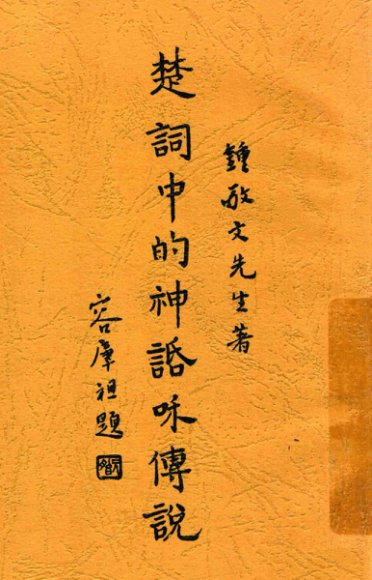 鍾敬文先生著
楚詞中的神話和傳說
容庫祖題